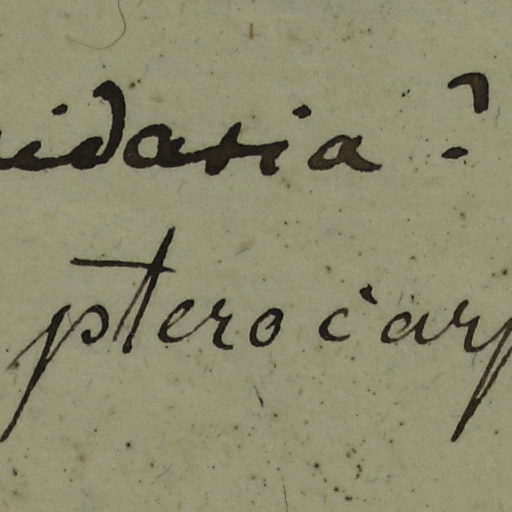 idaria ?
pterocarp